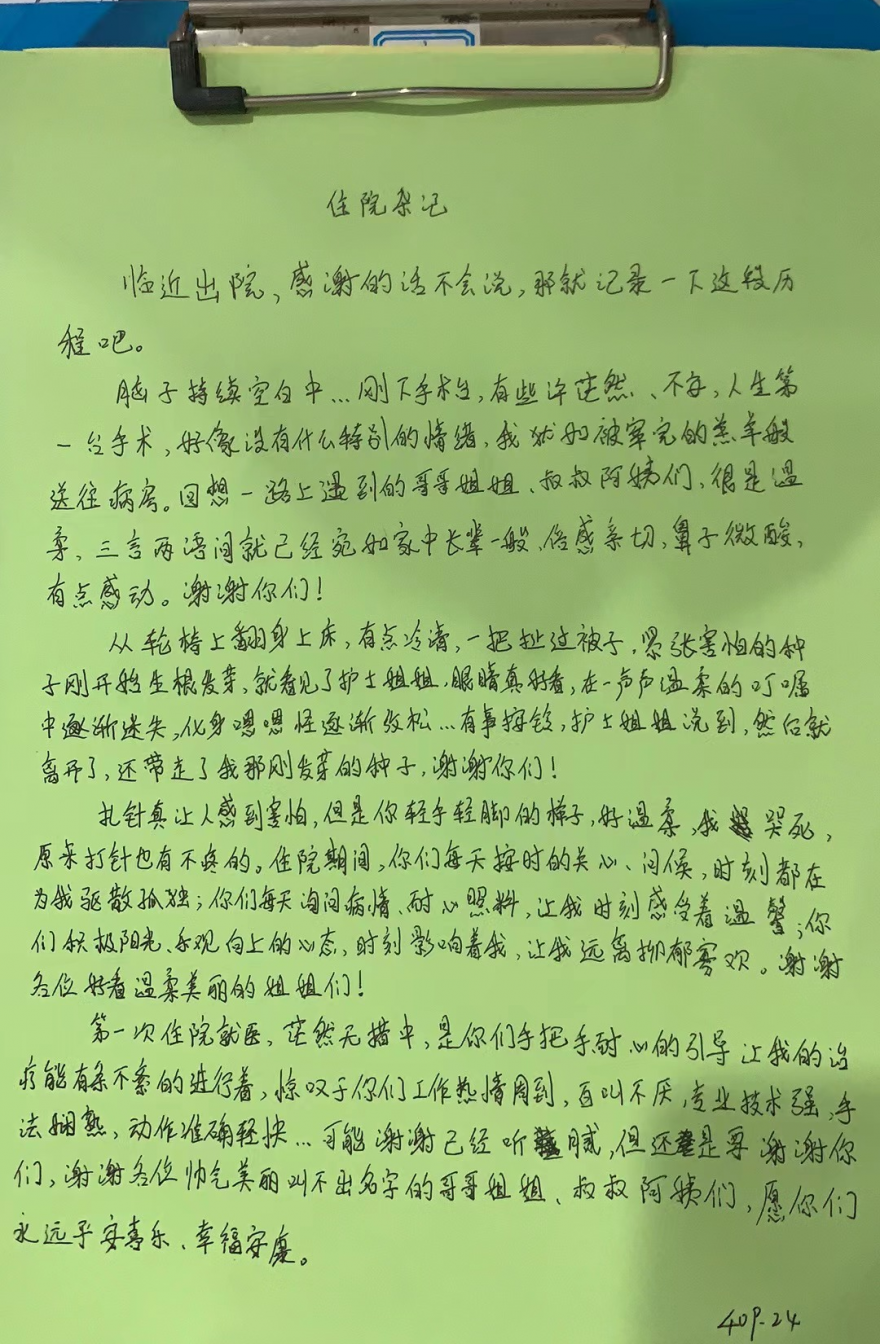 住院杂记
临近出院，感谢的话不会说，那就记录一下这段历
程吧。
脑子持续空白中…刚下手术台，有些许茫然、不安，人生第
一台手术，好像没有什么特别的情绪，我犹如被宰完的羔羊般
送往病房。回想一路上遇到的哥哥姐姐、叔叔阿姨们，很是温
柔，三言两语间就已经宛如家中长辈一般、倍感亲切，鼻子微酸，
有点感动。谢谢你们！
从轮椅上翻身上床，有点冷清，一把扯过被子，紧张害怕的种
子刚开始生根发芽，就看见了护士姐姐，眼睛真好看，在一声声温柔的叮嘱
中逐渐迷失，化身嗯嗯怪逐渐放松…有事按铃，护士姐姐说到，然后就
离开了，还带走了我那刚发芽的种子，谢谢你们！
扎针真让人感到害怕，但是你轻手轻脚的样子，好温柔，我哭死，
原来打针也有不疼的。住院期间，你们每天按时的关心、问候，时刻都在
为我驱散孤独；你们每天询问病情、耐心照料，让我时刻感受着温馨；你
们积极阳光、乐观向上的心态，时刻影响着我，让我远离抑郁寡欢。谢谢
各位好看温柔美丽的姐姐们！
第一次住院就医，茫然无措中，是你们手把手耐心的引导让我的治
疗能有条不紊的进行着，惊叹于你们工作热情周到，百叫不厌，专业技术强，手
法娴熟，动作准确轻快…可能谢谢已经听腻，但还是要谢谢你
们，谢谢各位帅气美丽叫不出名字的哥哥姐姐、叔叔阿姨们，愿你们
永远平安喜乐、幸福安康。
409.24